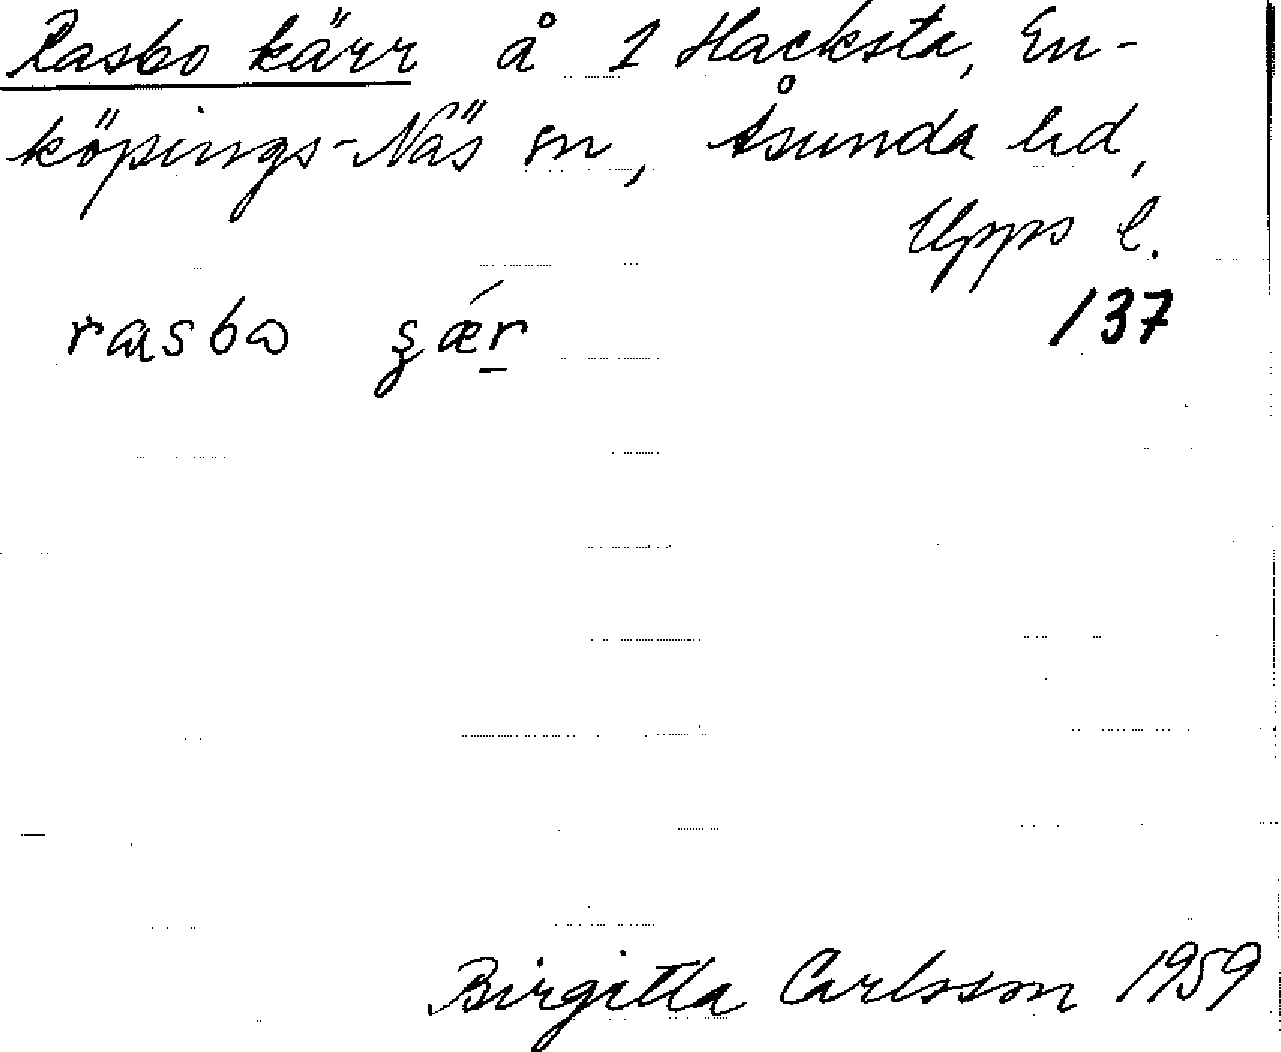 Rasbo kärr å 1 Hacksta, En-
köpings-Näs sn, Åsunda hd,
Upps l.
137
rasbo
Birgitta Carlsson 1959